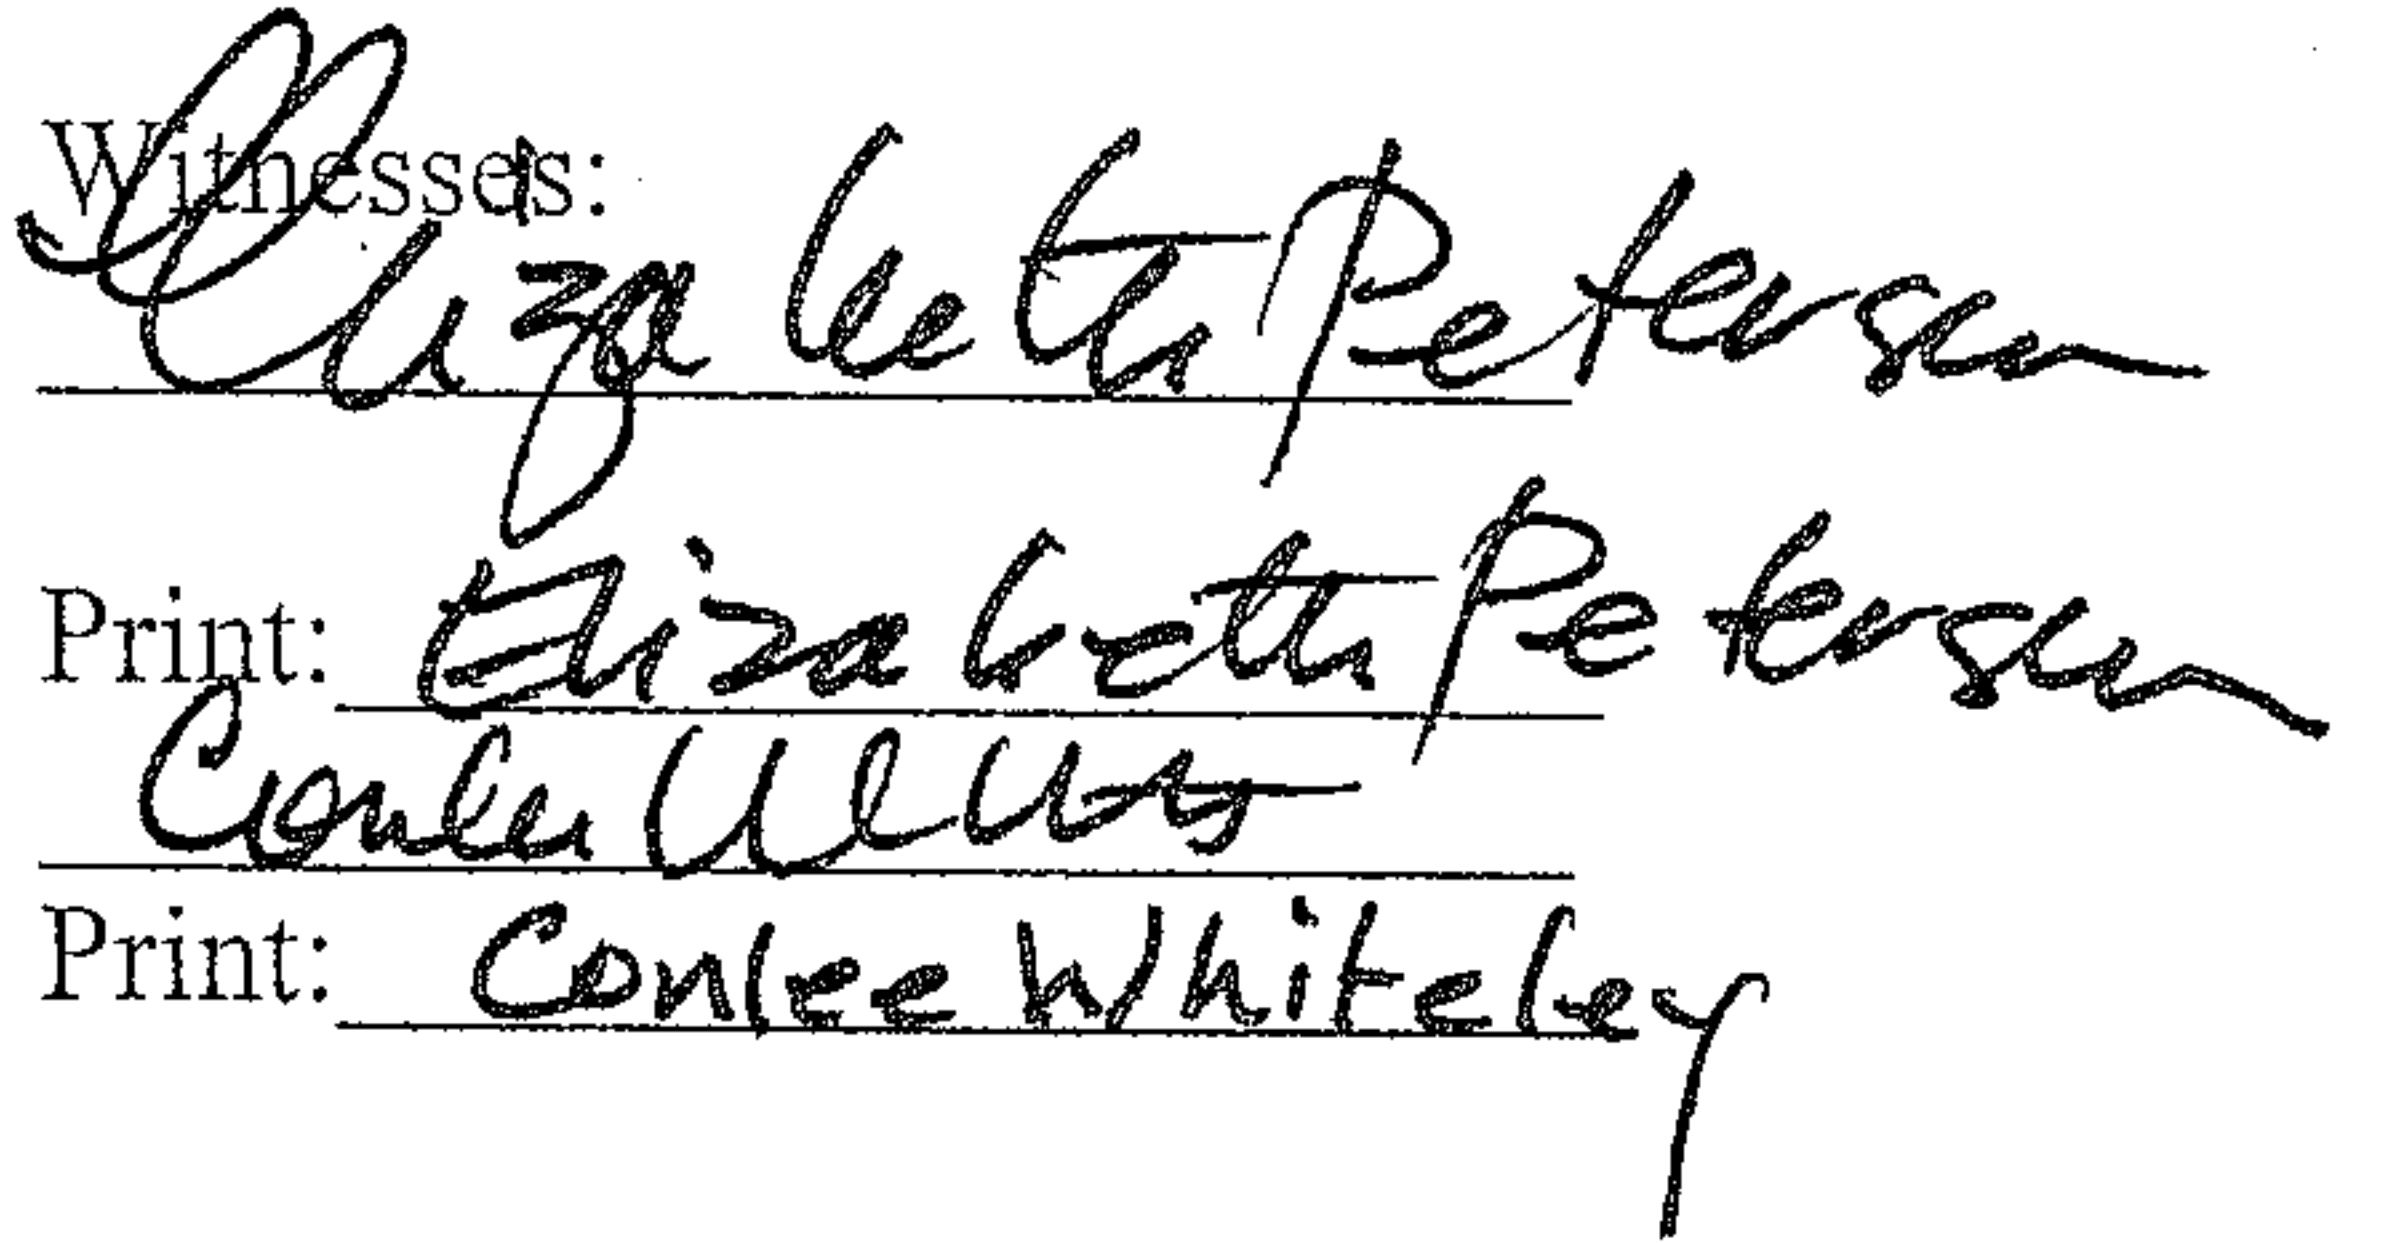 Witnesses:
Elizabeth Petersen
Print: Elizabeth Petersen
Conlee
Print: Conlee Whiteley